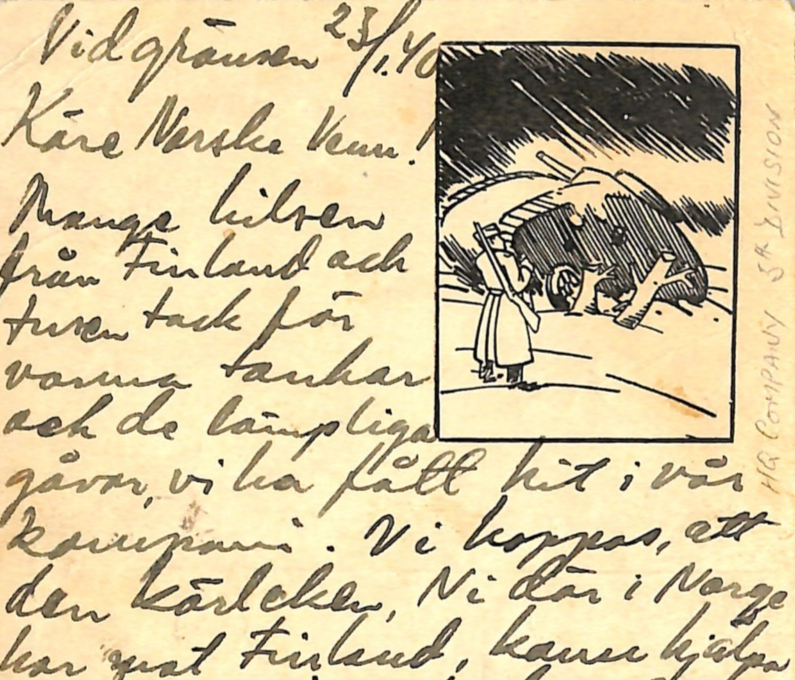 Vid gränsen 23/1.40
Käre Norske Venn!
Mange hilsen
från Finland och
tusen tack för
varma tankar
och de lämpliga
gåvor, vi ha fått hit i vår
kompani. Vi hoppas, att
den kärleken, Ni där i Norge
har mot Finland, kann hjälpa
HQ COMPANY 5th DIVISION